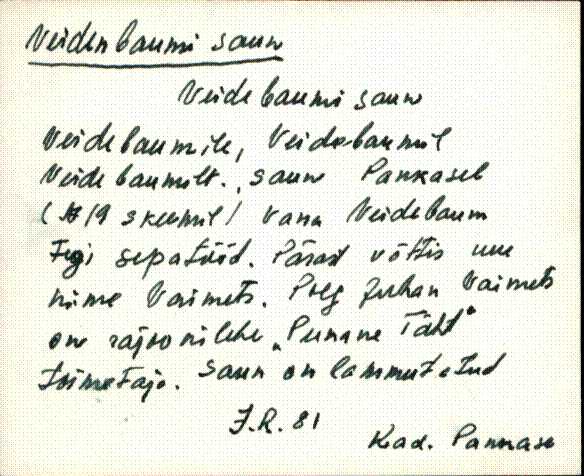 Veidenbaumi saun
Veidebaumi saun
Veidebaumile, Veidebaumil
Veidebaumilt., saun Pankasel
(№19 skeemil) vana Veidebaum
Tegi sepatööd. Pärast võttis uue
nime Vaimets. Poeg Juhan Vaimets
on rajoonilehe „Punane Täht"
toimetaja. Saun on lammutatud
J.R. 81
Kad. Pannase